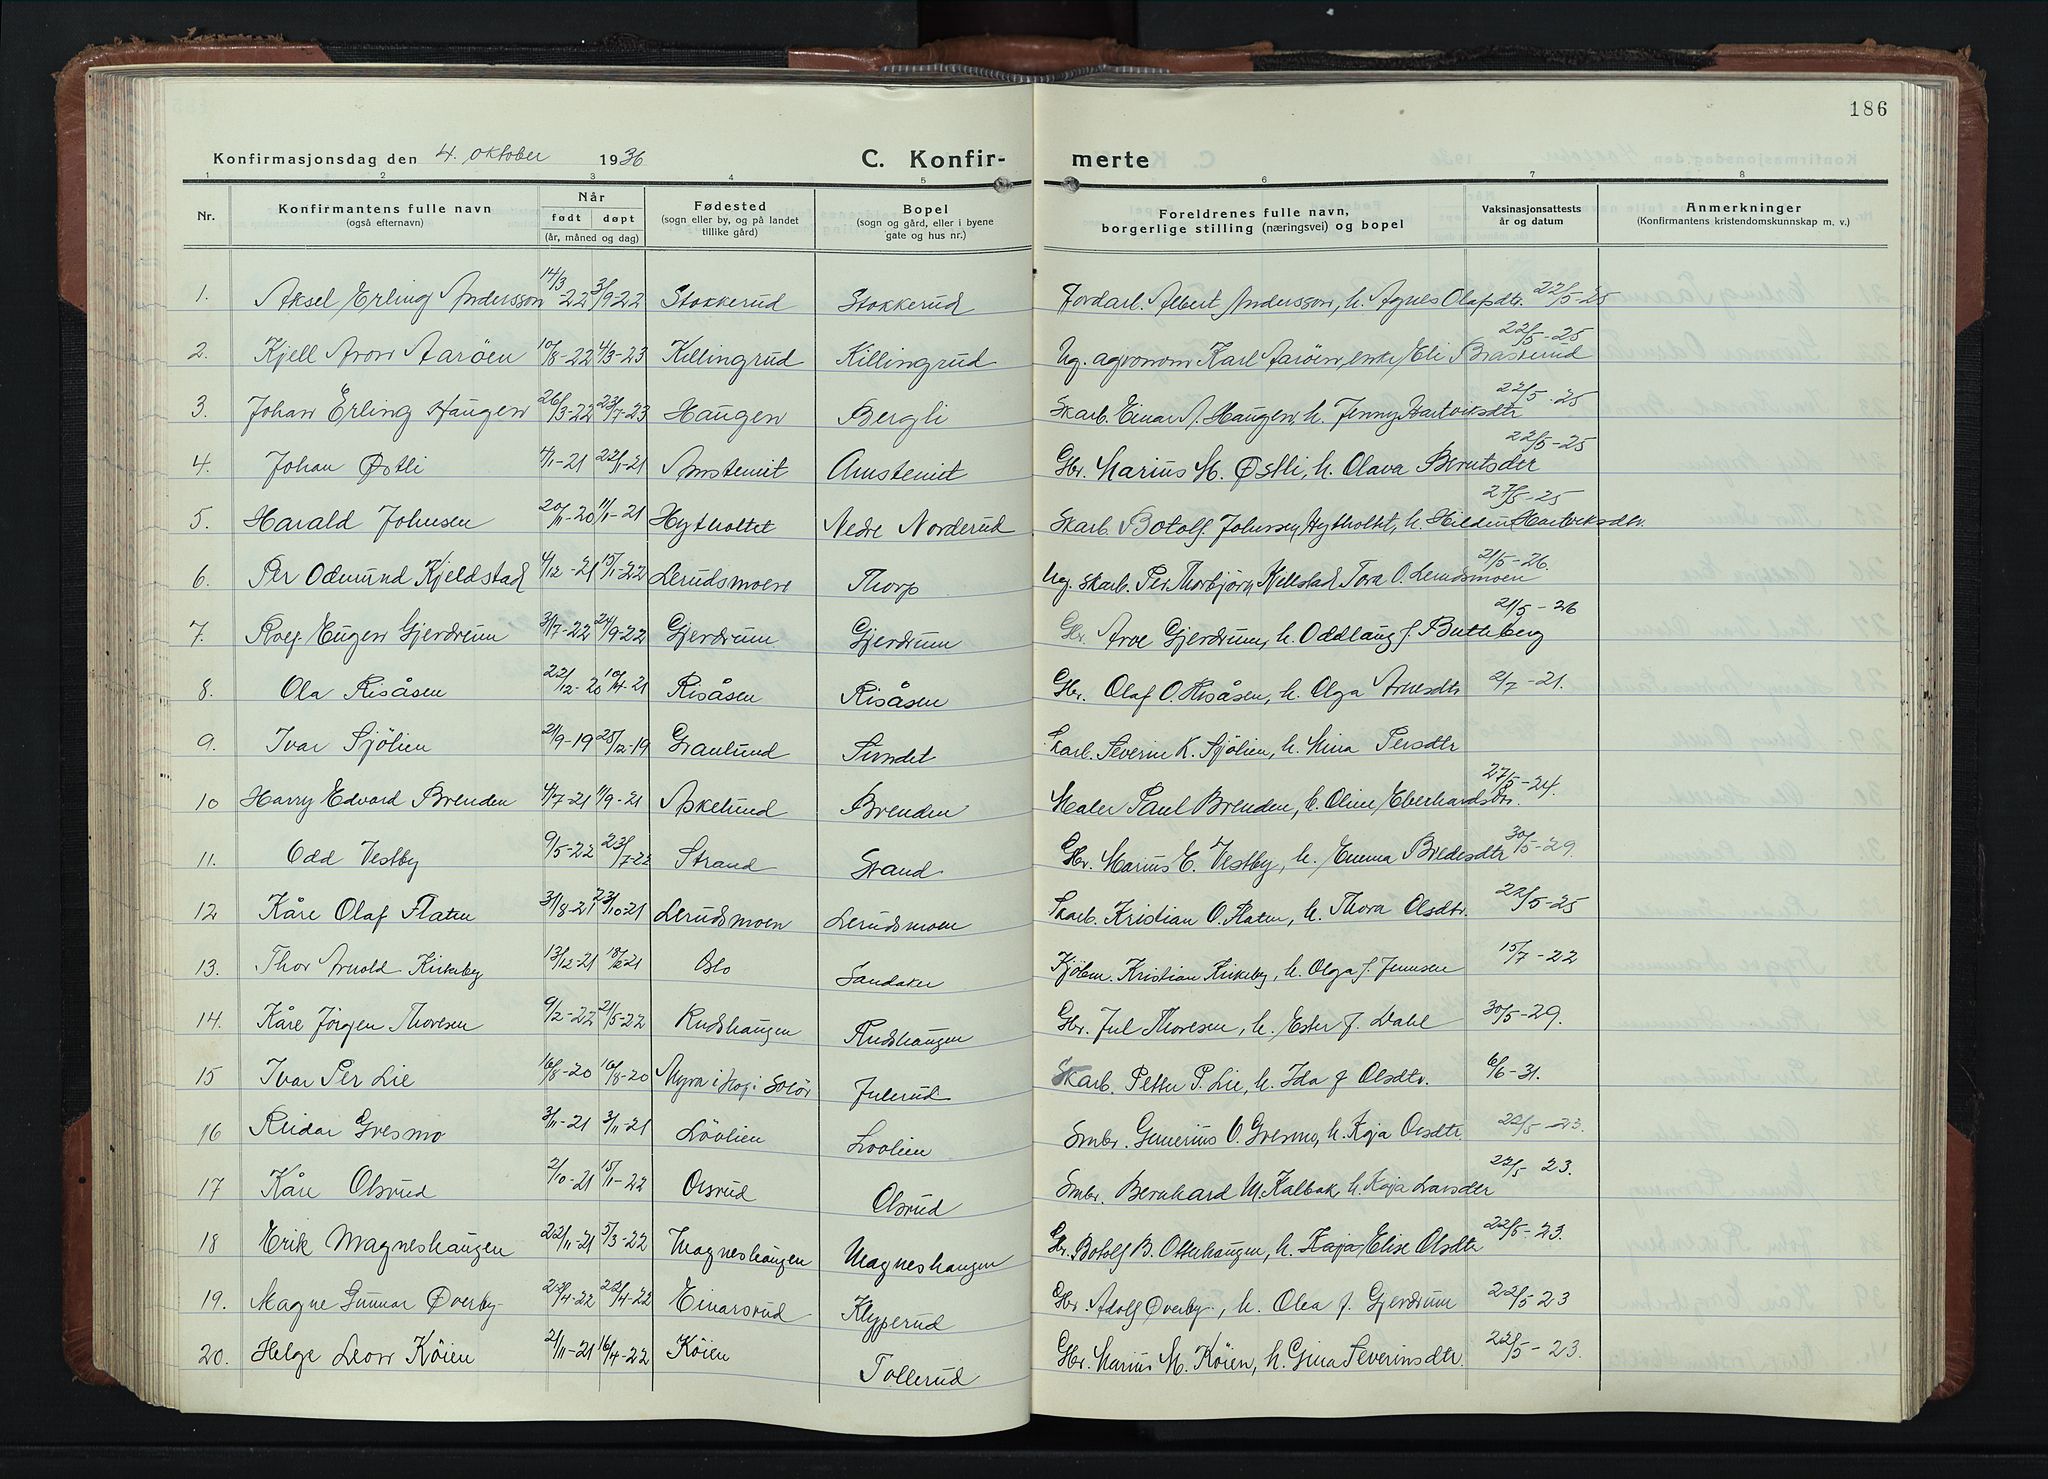 186
Konfirmasjonsdag den 4. oktober 1936 C. Konfir- merte
1 2 3 4 5 6 7 8
Nr. Konfirmantens fulle navn (også efternavn) Når født døpt (år, måned og dag) Fødested (sogn eller by, og på landet tillike gård) Bopel (sogn og gård, eller i byene gate og hus nr.) Foreldrenes fulle navn, borgerlige stilling (næringsvei) og bopel Vaksinasjonsattests år og datum Anmerkninger (Konfirmantens kristendomskunnskap m. v.)
1. Aksel Erling Andersson 14/3-22 3/9-22 Stokkerud Stokkerud Jordarb. Albert Andersson, h. Agnes Olafsdtr. 22/5-25
2. Kjell Aron Aarøen 10/8-22 4/3-23 Killingrud Killingrud Ug. agronom Karl Aarøen, enke Eli Brasrerud 22/5-25
3. Johan Erling Haugen 26/3-22 23/7-23 Haugen Bergli Skarb. Einar A. Haugen, h. Jenny Hartviksdtr 22/5-25
4. Johan Østli 4/1-21 22/11-21 Amstemit Amstemit Gbr. Marius M. Østli, h. Olava Berntsdtr 22/5-25
5. Harald Johnsen 20/11-20 11/1-21 Hytholtet Nedre Norderud Skarb. Botolf Johnsen, Hytholtet, h. Hildur Hartviksdtr. 27/5-25
6. Per Odmund Kjeldstad 4/12-21 15/1-22 Lerudsmoen Thorp Ug. skarb. Per Thorbjørn Kjellstad Tora O. Lerudsmoen 21/5-26.
7. Rolf Eugen Gjerdrum 31/7-22 24/9-22 Gjerdrum Gjerdrum Gbr. Arve Gjerdrum, h. Oddlaug f. Butteberg 21/5-26
8. Ola Risåsen 22/12-20 10/4-21 Risåsen Risåsen Gbr. Olaf O. Risåsen, h. Olga Arnesdtr 2/7-21.
9. Ivar Sjølien 21/9-19 25/12-19 Granlund Sundet Skarb. Severin K. Sjølien, h. Mina Persdtr
10 Harry Edvard Brenden 4/7-21 11/9-21 Askelund Brenden Maler Paul Brenden, h. Oline Eberhardsdtr. 27/5-24.
11. Odd Vestby 9/5-22 23/7-22 Strand Strand Gbr. Marius E. Vestby, h. Emma Bredesdtr 30/5-29.
12 Kåre Olaf Flaten 31/8-21 23/10-21 Lerudsmoen Lerudsmoen Skarb. Kristian O. Flaten, h. Thora Olsdtr. 22/5-25
13. Thor Arnold Kirkeby 13/12-21 18/12-21 Oslo Sandaker Kjøbm. Kristian Kirkeby, h. Olga f. Jensen 15/7-22
14. Kåre Jørgen Thoresen 9/2-22 21/5-22 Rudshaugen Rudshaugen Gbr. Jul Thoresen, h. Ester f. Dahl 30/5-29.
15 Ivar Per Lie 16/8-20 16/8-20 Myra i Hof i Solør Julerud Skarb. Petter P. Lie, h. Ida f. Olsdtr. 6/6-31.
16 Reidar Gresmo 3/11-21 3/11-21 Løvlien Løvlien Smbr. Gunerius O. Gresmo, h. Kaja Olsdtr 22/5-23.
17 Kåre Olsrud 2/10-21 15/1-22 Olsrud Olsrud Smbr. Bernhard M. Kalbak, h. Kaja Larsdtr 22/5-23.
18 Erik Magneshaugen 22/11-21 5/3-22 Magneshaugen Magneshaugen Gbr. Botolf B. Otterhaugen, h. Kaja Elise Olsdtr 22/5-23.
19. Magne Gunnar Øverby 23/4-22 22/4-22 Einarsrud Klypperud Gbr. Adolf Øverby, h. Olea f. Gjerdrum 22/5-23
20. Helge Leon Køien 2/11-21 16/4-22 Køien Tollerud Gbr. Marius M. Køien, h. Gina Severinsdtr. 22/5-23.